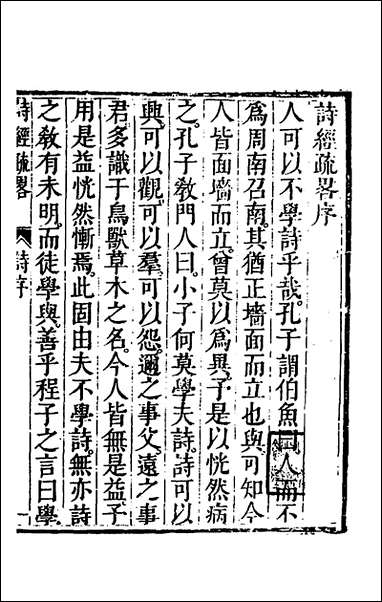 詩經疏畧序
人可以不學詩乎哉孔子謂伯魚曰人而不
爲周南召南其猶正墻面而立也與可知今
人皆面墻而立曾莫以爲異予是以恍然病
之孔子敎門人曰小子何莫學夫詩詩可以
興可以觀可以羣可以怨邇之事父遠之事
君多識于鳥獸草木之名今人皆無是益予
用是益恍然慚焉此固由夫不學詩無亦詩
之敎有未明而徒學與善乎程子之言曰學
詩經疏畧
詩序
一